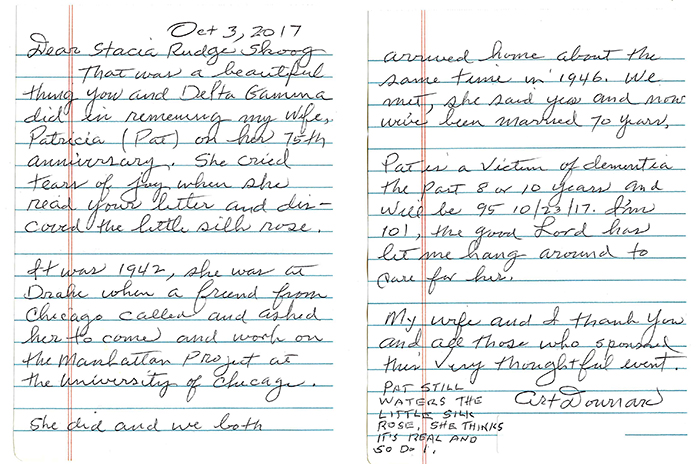 Oct 3, 2017
Dear Stacia Rudge Skoog
That was a beautiful
thing you and Delta Gamma
did in rememing my wife,
Patricia (Pat) on her 75th
anniversary. She cried
tears of joy when she
read your letter and dis-
covered the little silk rose.
It was 1942, she was at
Drake when a friend from
Chicago called and asked
her to come and work on
the Manhattan Project at
the University of Chicago.
She did and we both
arrived home about the
same time in 1946. We
met, she said yes and now
we've been married 70 years,
Pat is a victim of dementia
the past 8 or 10 years and
will be 95 10/23/17. I'm
101, the good Lord has
let me hang around to
care for her.
My wife and I thank you
and all those who sponsed
this very thoughtful event.
Art Downard
PAT STILL
WATERS THE
LITTLE SILK
ROSE, SHE THINKS
IT'S REAL AND
SO DO I.